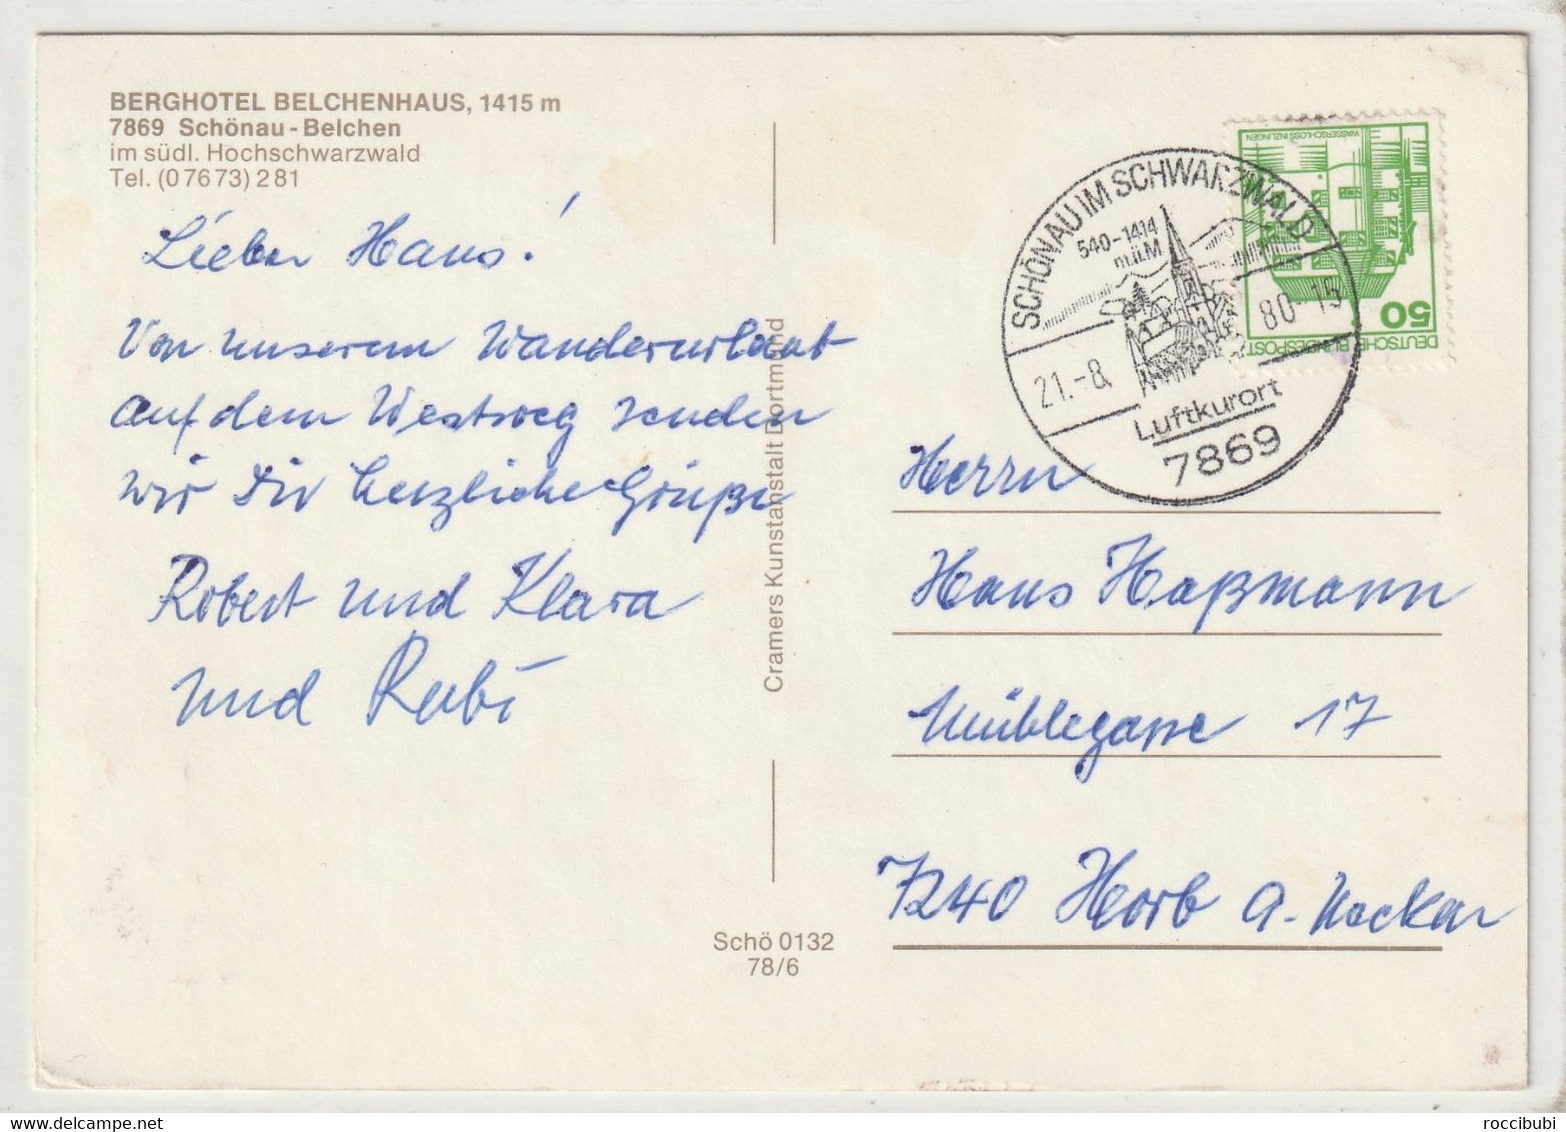 BERGHOTEL BELCHENHAUS, 1415 m
7869 Schönau-Belchen
im südl. Hochschwarzwald
Tel. (0 76 73) 2 81
Lieber Hans!
Von unserem Wanderurlaub
auf dem Westweg senden
wir Dir herzliche Grüße
Robert und Klara
und Rubi
Cramers Kunstanstalt Dortmund
Schö 0132
78/6
DEUTSCHE BUNDESPOST
50
WASSERSCHLOSS INZLINGEN
SCHÖNAU IM SCHWARZWALD
540-1414
müM
21.-8. 80-15
Luftkurort
7869
Herrn
Hans Haßmann
Mühlegasse 17
7240 Horb a. Neckar
roccibubi